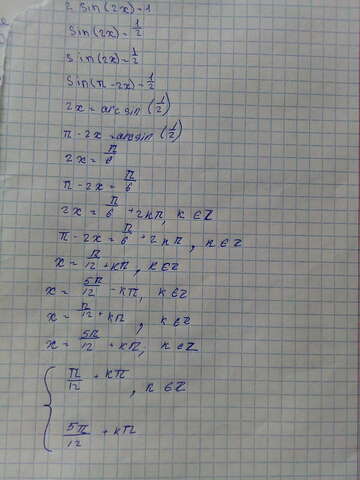 2 sin(2x) = 1
sin(2x) = 1/2
sin(2x) = 1/2
sin(π - 2x) = 1/2
2x = arcsin (1/2)
π - 2x = arcsin (1/2)
2x = π/6
π - 2x = π/6
2x = π/6 + 2kπ, k ∈ Z
π - 2x = π/6 + 2kπ, k ∈ Z
x = π/12 + kπ, k ∈ Z
x = 5π/12 - kπ, k ∈ Z
x = π/12 + kπ, k ∈ Z
x = 5π/12 + kπ, k ∈ Z
{ π/12 + kπ
, k ∈ Z
5π/12 + kπ